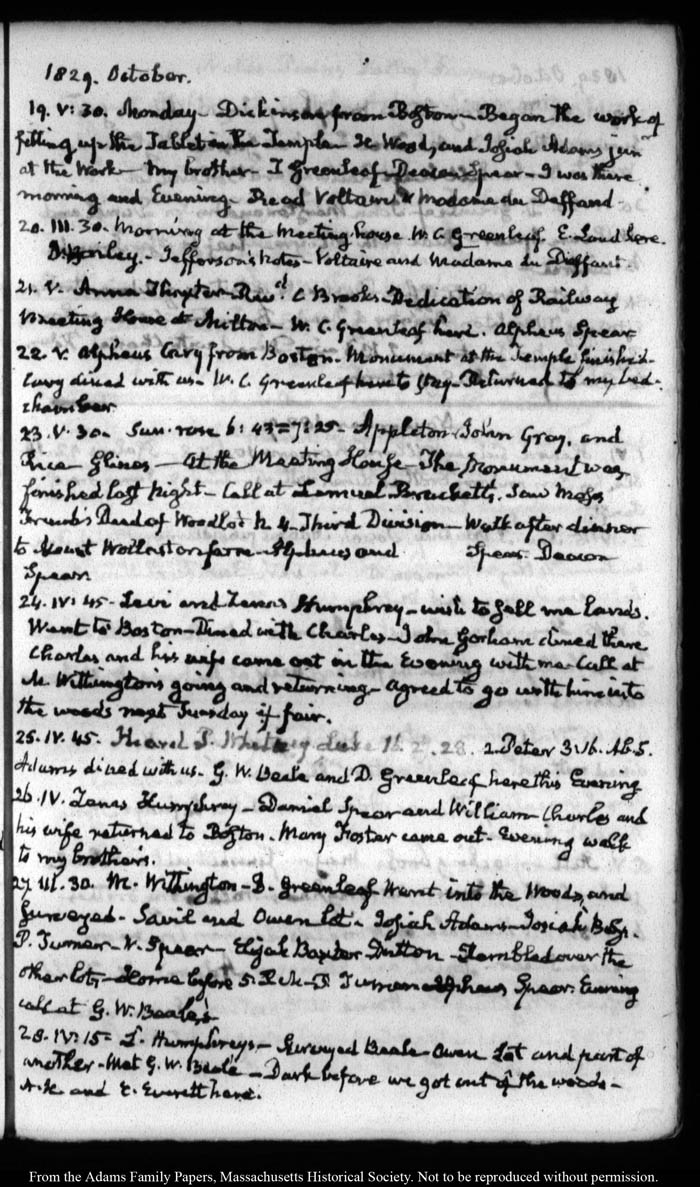 1829. October.
19. V: 30. Monday. Dickinson from Boston – Began the work of
fitting up the Tablet in the Temple – Wood, and Josiah Adams junr
at the Work – My brother – T Greenleaf – Deacon Spear – I was there
morning and Evening – Read Voltaire & Madame du Deffand –
20. III. 30. Morning at the Meeting house. W. C. Greenleaf. E. Loud here.
Bailey. – Jefferson's notes – Voltaire and Madame du Deffand.
21. V. Anna Thaxter – Revd. C Brooks – Dedication of Railway
Meeting House at Milton – W. C. Greenleaf here. Alpheus Spear
22. V. Alpheus Cary from Boston. Monument at the Temple finish'd –
Cary dined with us – W. C. Greenleaf here to – Returned to my bed-
chamber
23. V. 30. Sun. rose 6: 43 = 7: 25 – Appleton – John Gray, and
– At the Meeting House – The Monument was
finished last Night – Call at Lemuel Brackett's. Saw Moses
Deed of Woodlot N. 4. Third Division – Walk after dinner
to Mount Wollaston farm – Alpheus and Spear. Deacon
Spear
24. IV: 45 – Levi and Lenas Humphrey – wish to sell me lands.
Went to Boston – Dined with Charles – John Gorham dined there
Charles and his wife came out in the Evening with me – Call at
M. Withington's going and returning – agreed to go with him into
the woods next Tuesday if fair.
25. IV. 45. Heard P. Whitney Luke 11. 2. 28. 2. Peter 3. 16. Ab. S.
Adams dined with us – G. W. Beale and D. Greenleaf here this Evening
26. IV. Lenas Humphrey – Daniel Spear and William – Charles and
his wife returned to Boston. Mary Foster came out – Evening walk
to my brother's.
27. III. 30. M. Withington – D. Greenleaf Went into the Woods, and
surveyed – Savil and Owen lot – Josiah Adams – Josiah
P. Turner – V. Spear – Elijah Baxter – Dutton – Rambled over the
other lots – Home before 5. P. M – P. Turner – Alpheus Spear. Evening
call at G. W. Beale's –
28. IV: 15 = L. Humphreys – Surveyed Beale Owen Lot and part of
another – Met G. W. Beale – Dark before we got out of the woods –
A. H. and E. Everett here.
From the Adams Family Papers, Massachusetts Historical Society. Not to be reproduced without permission.